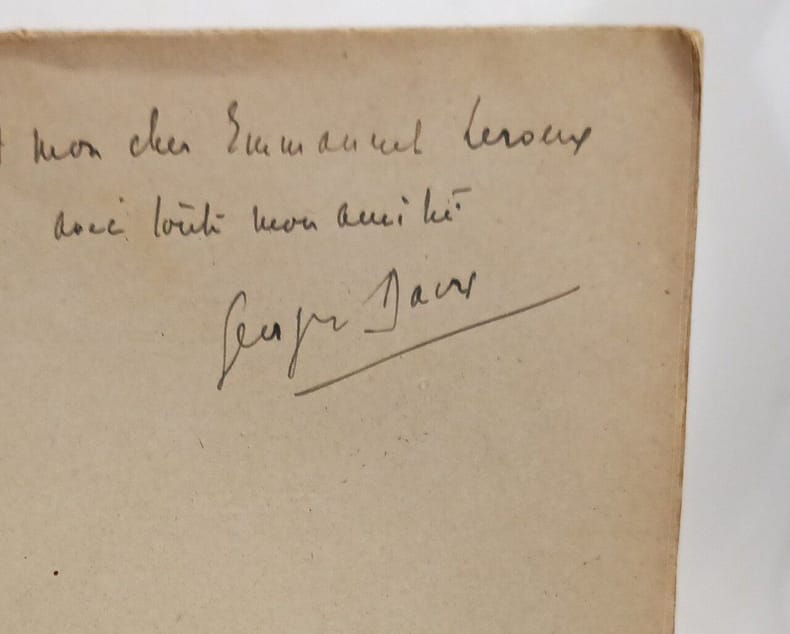 mon cher Emmanuel Leroux
avec toute mon amitié
Georges